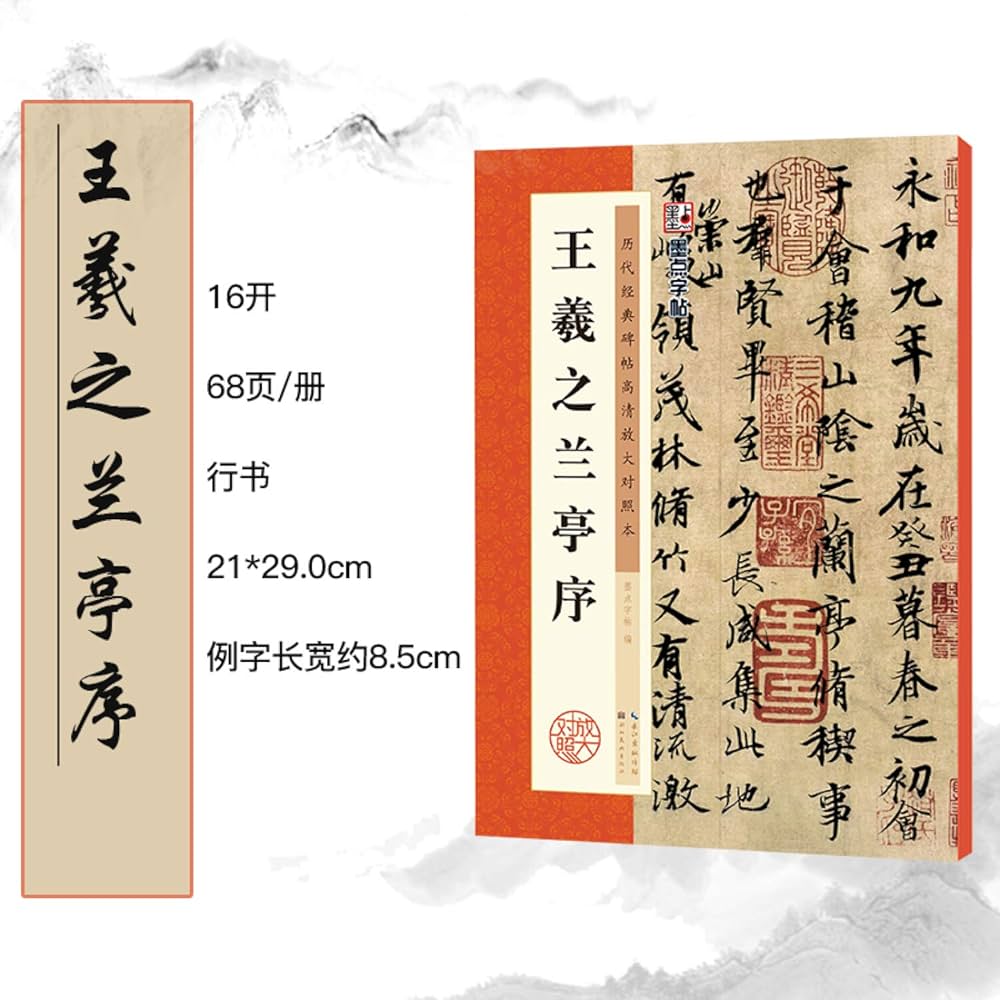 王羲之兰亭序
16开
68页/册
行书
21*29.0cm
例字长宽约8.5cm
王羲之兰亭序
历代经典碑帖高清放大对照本
墨点字帖 编
放大对照
墨点
墨点字帖
永和九年歲在癸丑暮春之初會
于會稽山陰之蘭亭脩稧事
也羣賢畢至少長咸集此地
有崇山領茂林脩竹又有清流激